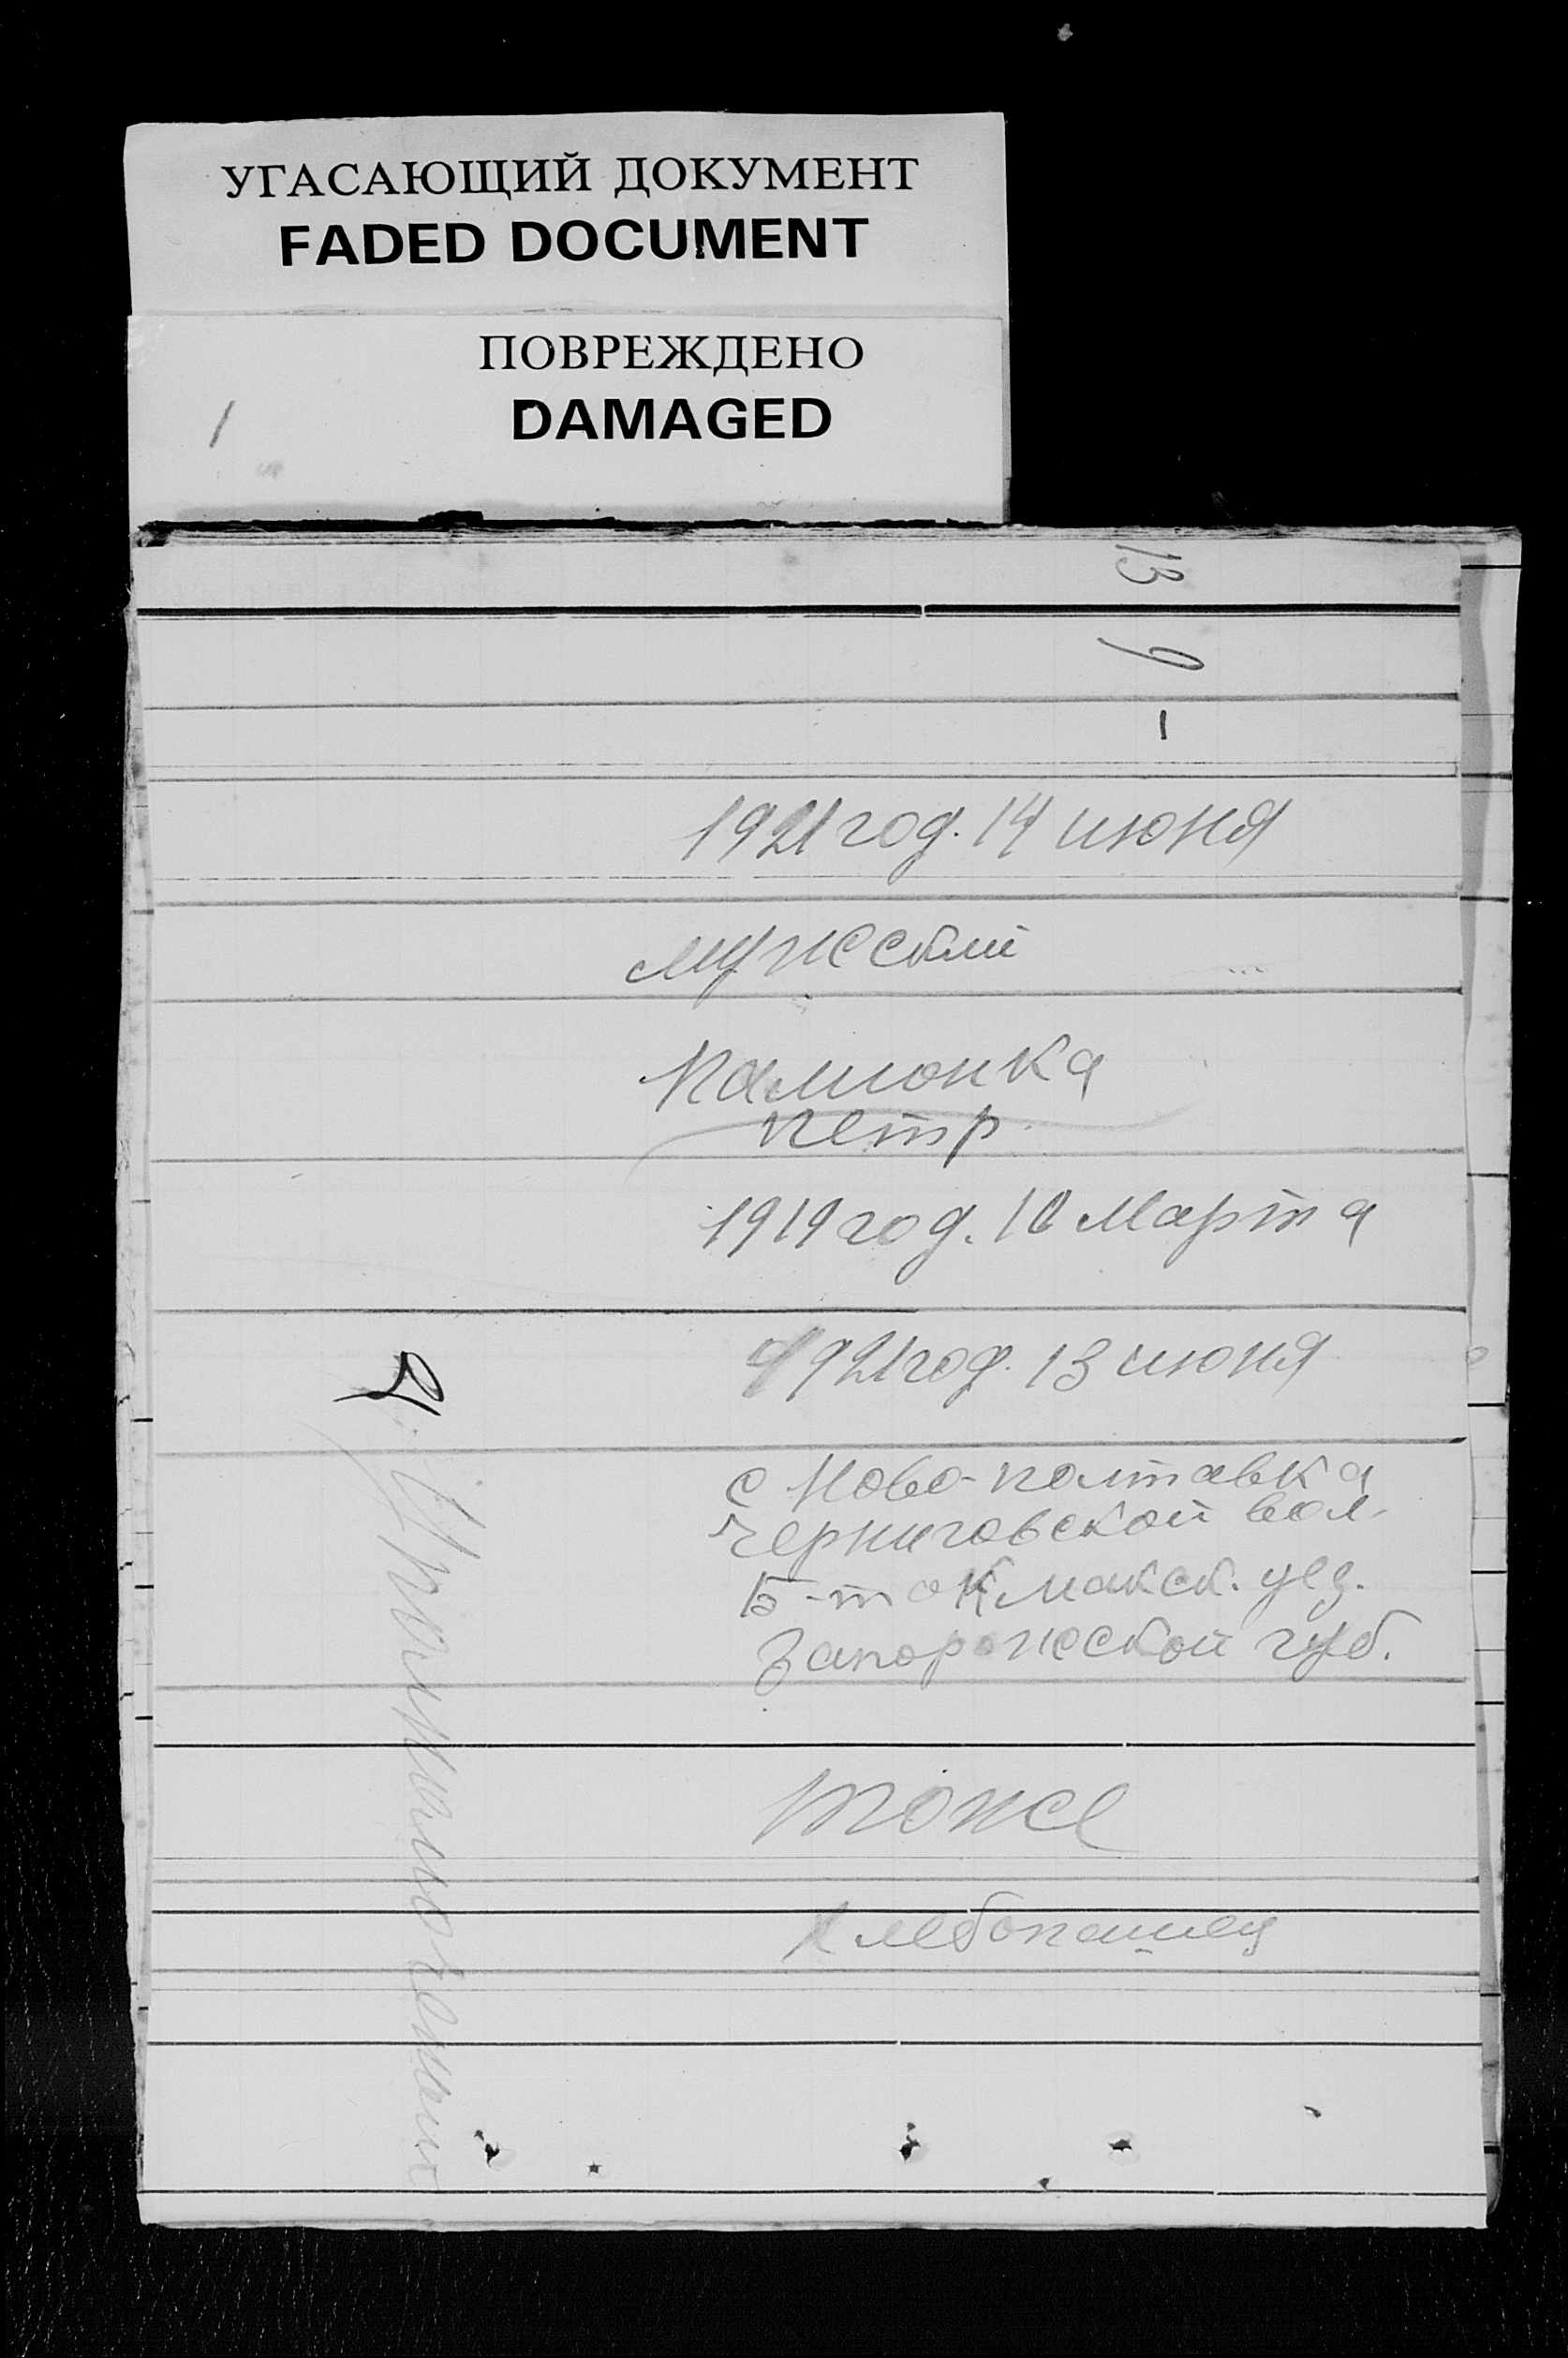 УГАСАЮЩИЙ ДОКУМЕНТ
FADED DOCUMENT
ПОВРЕЖДЕНО
DAMAGED
1
13
9
-
1921 год. 14 июня
мужеский
Петр
1919 год. 10 Марта
1921 год. 13 июня
с Ново-полтавка
Черниговской вол.
Б-токмакск. уез.
Запорожской губ.
тоже
Хлебопашец